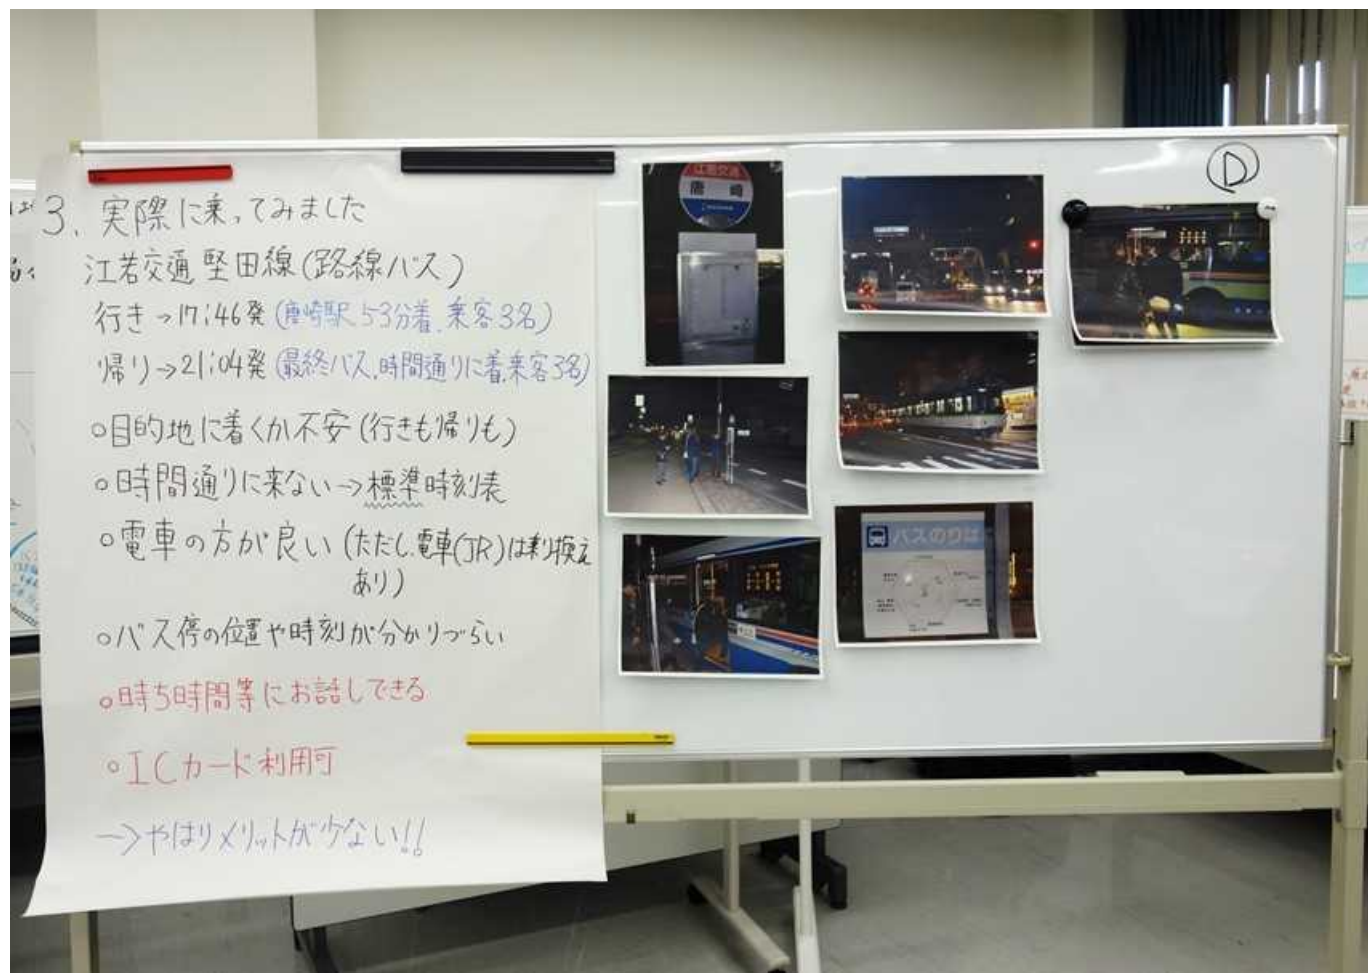 3. 実際に乗ってみました
江若交通 堅田線(路線バス)
行き→17:46発(唐崎駅53分着、乗客3名)
帰り→21:04発(最終バス、時間通りに着、乗客3名)
○目的地に着くか不安(行きも帰りも)
○時間通りに来ない→標準時刻表
○電車の方が良い(ただし、電車(JR)は乗り換え
あり)
○バス停の位置や時刻が分かりづらい
○時ち時間等にお話しできる
○ICカード利用可
→やはりメリットが少ない!!
江若交通
唐崎
D
バスのりば